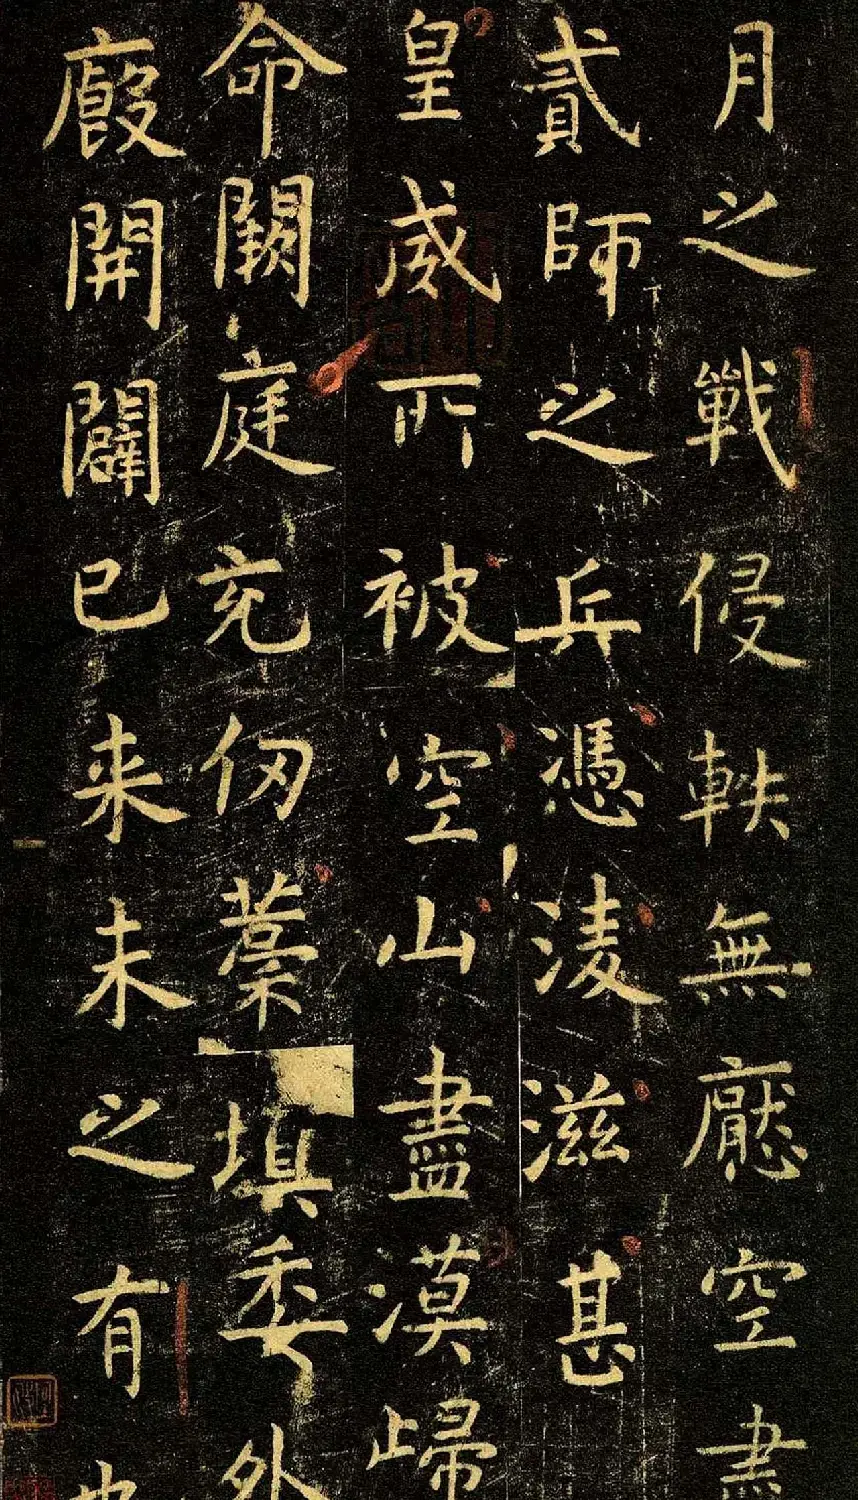 月之戰侵軼無厭空盡
貳師之兵憑淩滋甚
皇威所被空山盡漠歸
命闕庭充仞藁填委外
廄開闢已来未之有